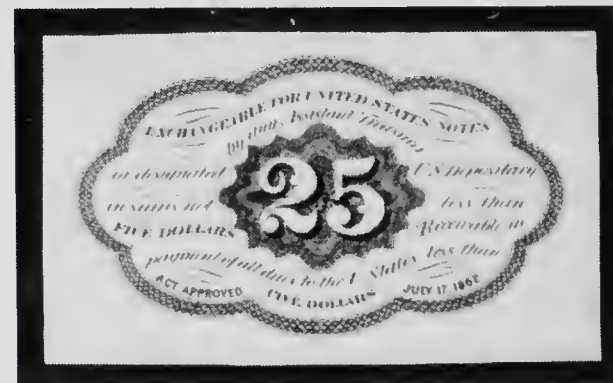 EXCHANGEABLE FOR UNITED STATES NOTES
by any Assistant Treasurer
or designated U.S. Depositary
in sums not less than
FIVE DOLLARS Receivable in
payment of all dues to the U. States less than
FIVE DOLLARS
ACT APPROVED JULY 17, 1862
25